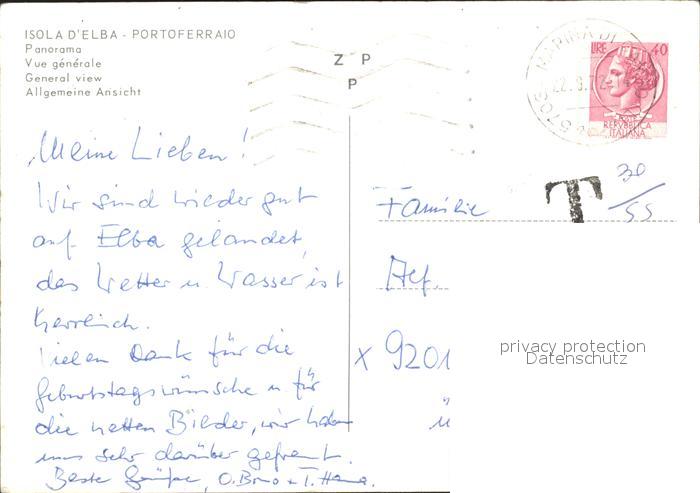 ISOLA D'ELBA - PORTOFERRAIO
Panorama
Vue générale
General view
Allgemeine Ansicht
Z P
P
MARINA DI
57034
22.9.7
LIRE 40
REPUBBLICA
ITALIANA
T
30/55
Meine Lieben!
Wir sind wieder gut
auf Elba gelandet,
das Wetter u. Wasser ist
herrlich.
Vielen Dank für die
Geburtstagswünsche u. für
die netten Bilder, wir haben
uns sehr darüber gefreut.
Beste Grüße, O. Bruno + T. Hanna.
Familie
Aef.
x 9201
ü
privacy protection
Datenschutz